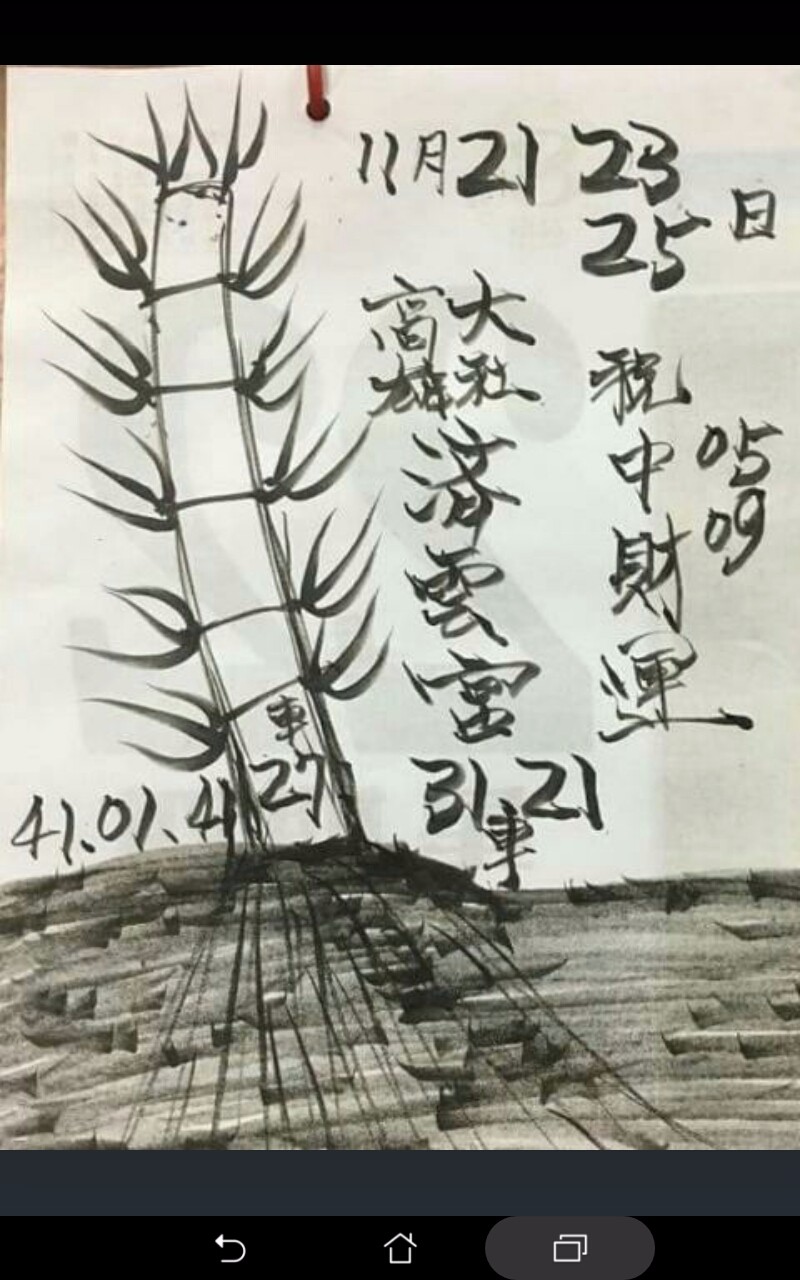 11月21 23
25 日
高雄
大社
済雲宮
31 21
車
稅中財運
05
09
車
27
41.01.41